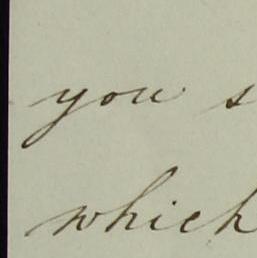 you s
which